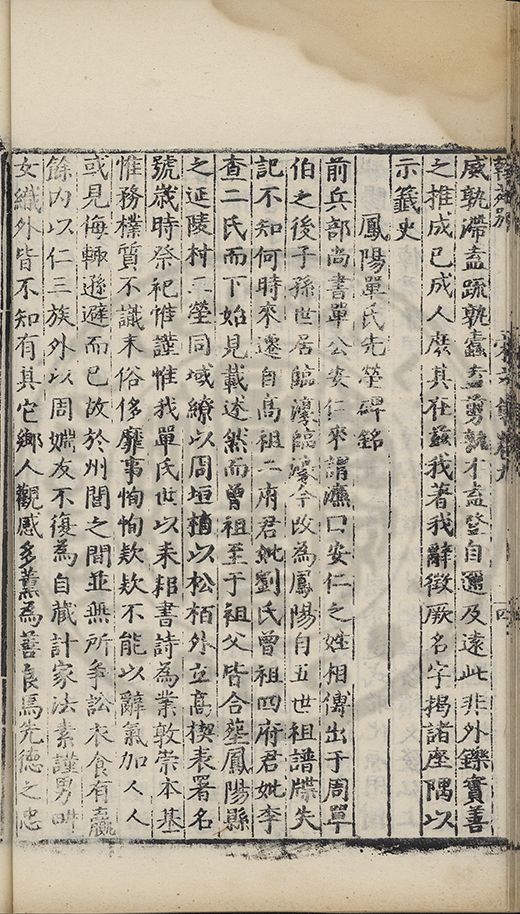 威孰滯盍疏孰蠱盍勇孰不盍暨自邇及遠此非外鑠實善
之推成已成人庶其在茲我著我辭徵厥名字揭諸座隅以
示籤史
鳳陽單氏先塋碑銘
前兵部尚書單公安仁來謂濂曰安仁之姓相傳出于周單
伯之後子孫世居臨濠臨濠今改為鳳陽自五世祖譜牒失
記不知何時來遷自高祖二府君妣劉氏曾祖四府君妣李
查二氏而下始見載述然而曾祖至于祖父皆合葬鳳陽縣
之延陵村二塋同域繚以周垣樹以松栢外立高楔表署名
號歲時祭祀惟謹惟我單氏世以耒耜書詩為業敦崇本基
惟務樸質不識末俗侈靡事恂恂欵欵不能以辭氣加人人
或見侮輙遜避而已故於州閭之間並無所爭訟衣食有贏
餘內以仁三族外以周婣友不復為自藏計家法素謹男畊
女織外皆不知有其它鄉人觀感多薰為善良焉先德之忠